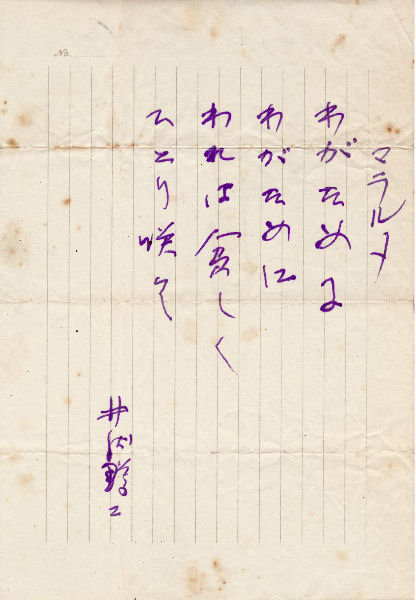 No.
マラルメ
わがためよ
わがために
われは貧しく
ひとり咲て